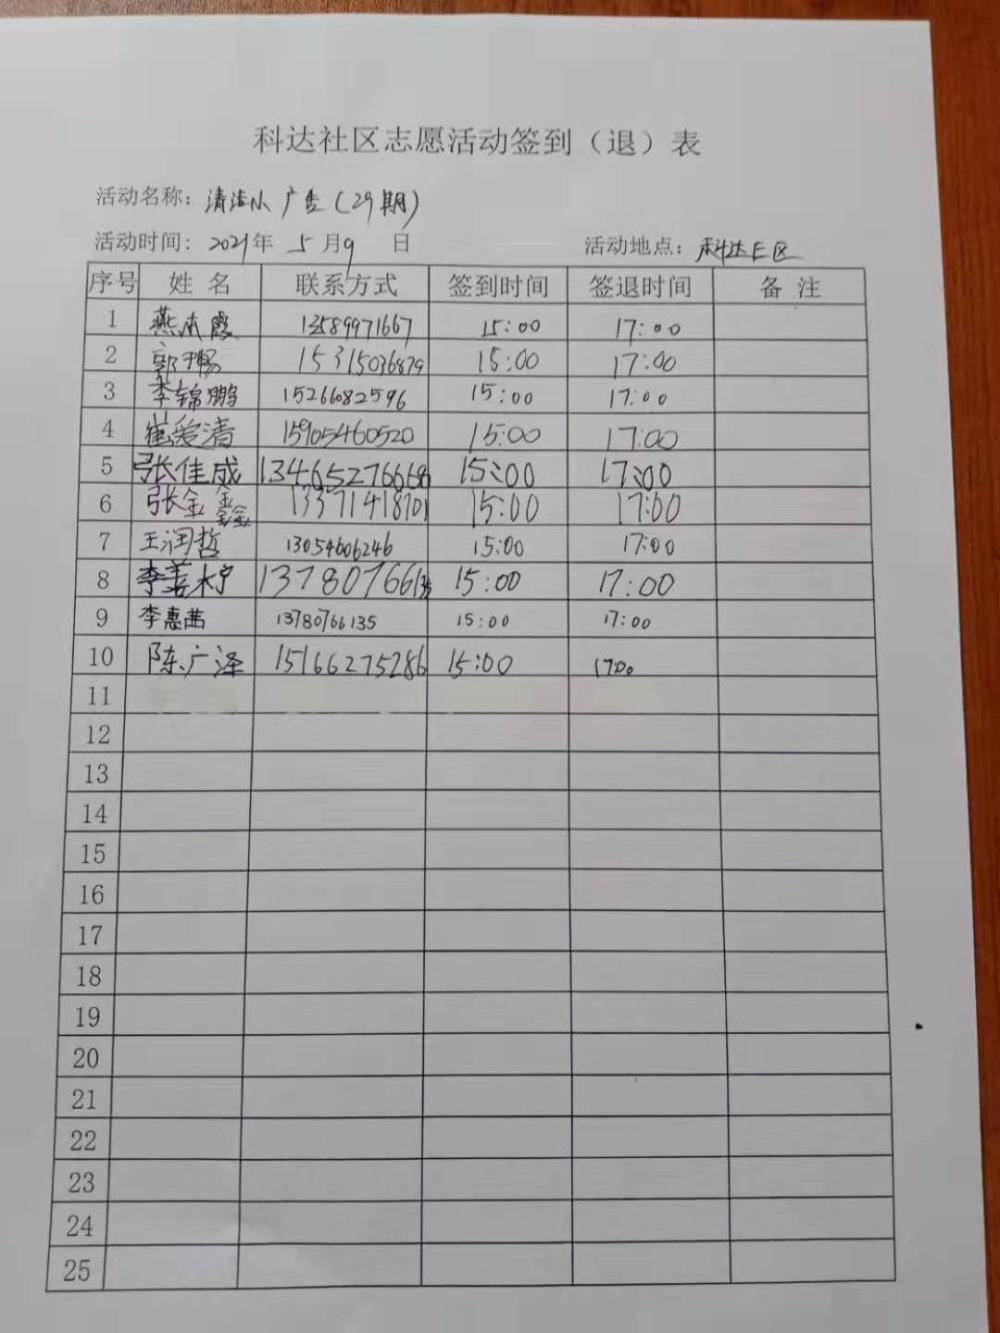 科达社区志愿活动签到（退）表
活动名称：清洁小广告（29期）
活动时间：2021年 5月9 日 活动地点：科达E区
序号 姓 名 联系方式 签到时间 签退时间 备 注
1 燕霞 13589971667 15:00 17:00
2 郭子畅 15315036879 15:00 17:00
3 李锦鹏 15266082596 15:00 17:00
4 崔爱清 15905460520 15:00 17:00
5 张佳成 13465276668 15:00 17:00
6 张金鑫 13371418701 15:00 17:00
7 王润哲 13054606246 15:00 17:00
8 李善 13780766135 15:00 17:00
9 李惠茜 13780766135 15:00 17:00
10 陈广泽 15166275286 15:00 17:00
11
12
13
14
15
16
17
18
19
20
21
22
23
24
25